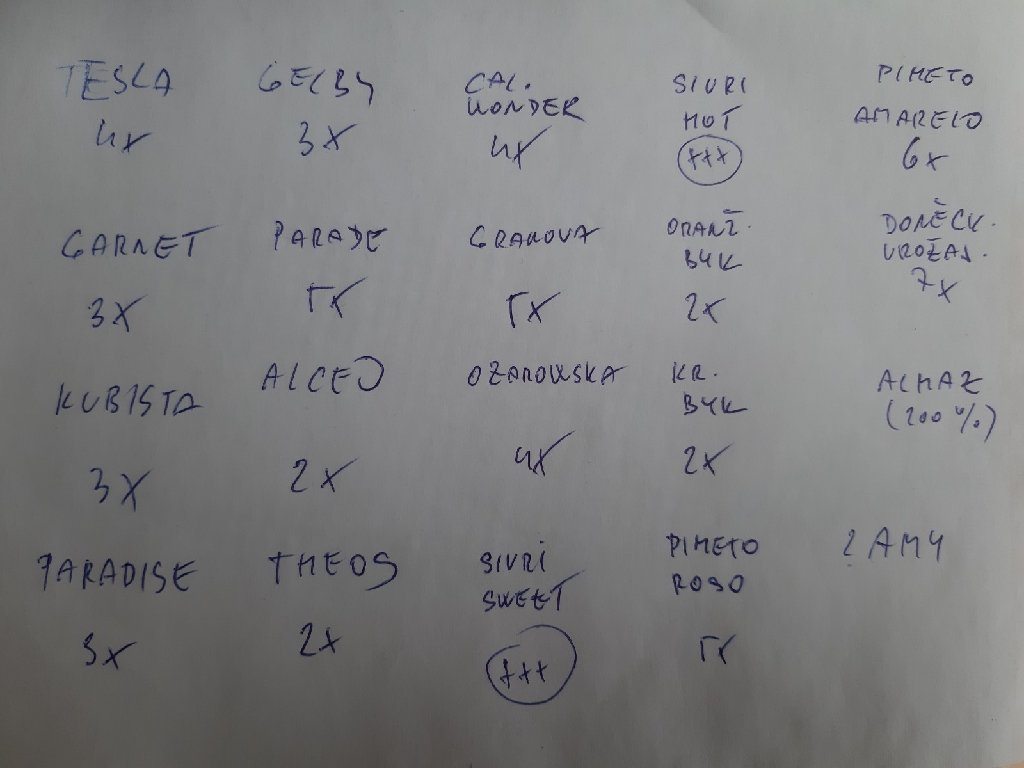 TESLA GELBY CAL. SIVRI PIMETO
WONDER HOT AMARELO
4x 3x 4x +++ 6x
GARNET PARADE GRANOVA ORANŽ. DONĚCK.
BYK UROŽAJ.
3x 5x 5x 2x 7x
KUBISTA ALCEO OŽAROWSKA KR. ALMAZ
BYK (200%)
3x 2x 4x 2x
PARADISE THEOS SIVRI PIMETO ? AMY
SWEET ROSO
3x 2x +++ 5x